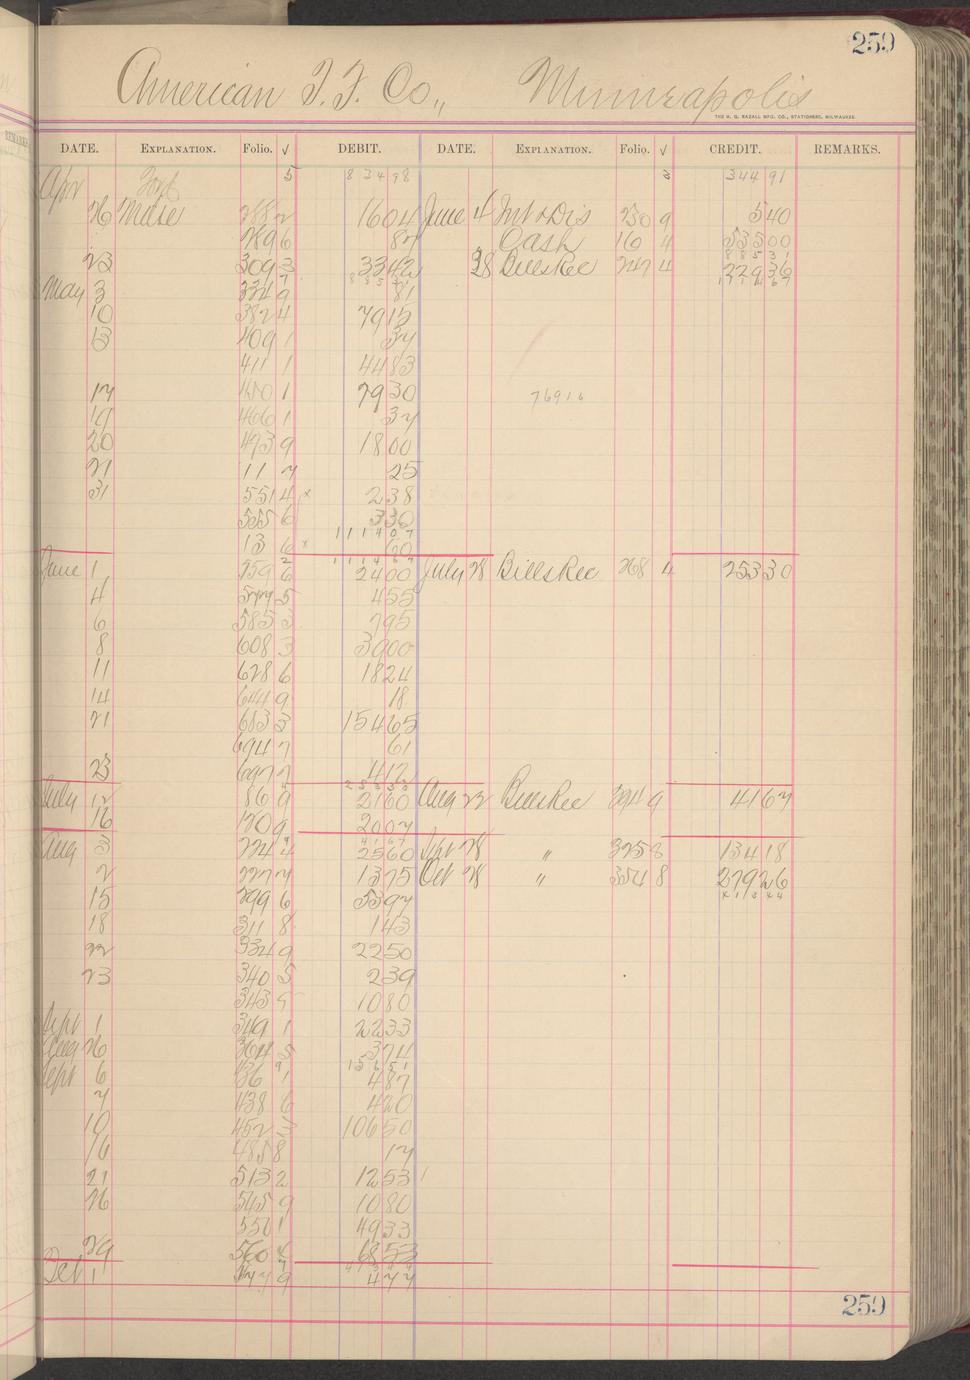 259
American T. F. Co., Minneapolis
THE H. G. RAZALL MFG. CO., STATIONERS, MILWAUKEE.
DATE. EXPLANATION. Folio. √ DEBIT. DATE. EXPLANATION. Folio. √ CREDIT. REMARKS.
Apr 5 83498 3 34491
26 Mdse 288 2 1604 June 4 Int & Dis 230 9 540
289 6 87 Cash 16 4 53500
23 309 3 3342 28 Bills Rec 247 4 22936
May 3 334 9 81
10 382 4 7915
13 409 1 34
411 1 4483
17 450 1 7930 76916
19 466 1 34
20 473 9 1800
21 11 7 25
31 551 4 x 238
555 6 330
111407
13 6 x 60
June 1 559 6 2400 July 28 Bills Rec 268 4 25330
4 577 5 455
6 585 3 795
8 608 3 3000
11 628 6 1824
14 644 9 18
21 683 3 15465
694 7 61
23 697 7 412
July 12 86 9 2160 Aug 22 Bills Rec 294 9 4167
16 120 9 2007
Aug 3 224 4 2560 Sept 28 " 325 3 13418
2 227 7 1375 Oct 28 " 354 8 27926
15 299 6 5397 41344
18 311 8 143
22 334 9 2250
23 340 5 239
343 9 1080
Sept 1 349 1 2233
Aug 26 364 5 374
Sept 6 436 1 487
7 438 6 420
10 452 3 10650
16 485 8 17
21 513 2 1253
26 545 9 1080
550 1 4933
29 560 4 6853
Oct 1 577 9 477
259